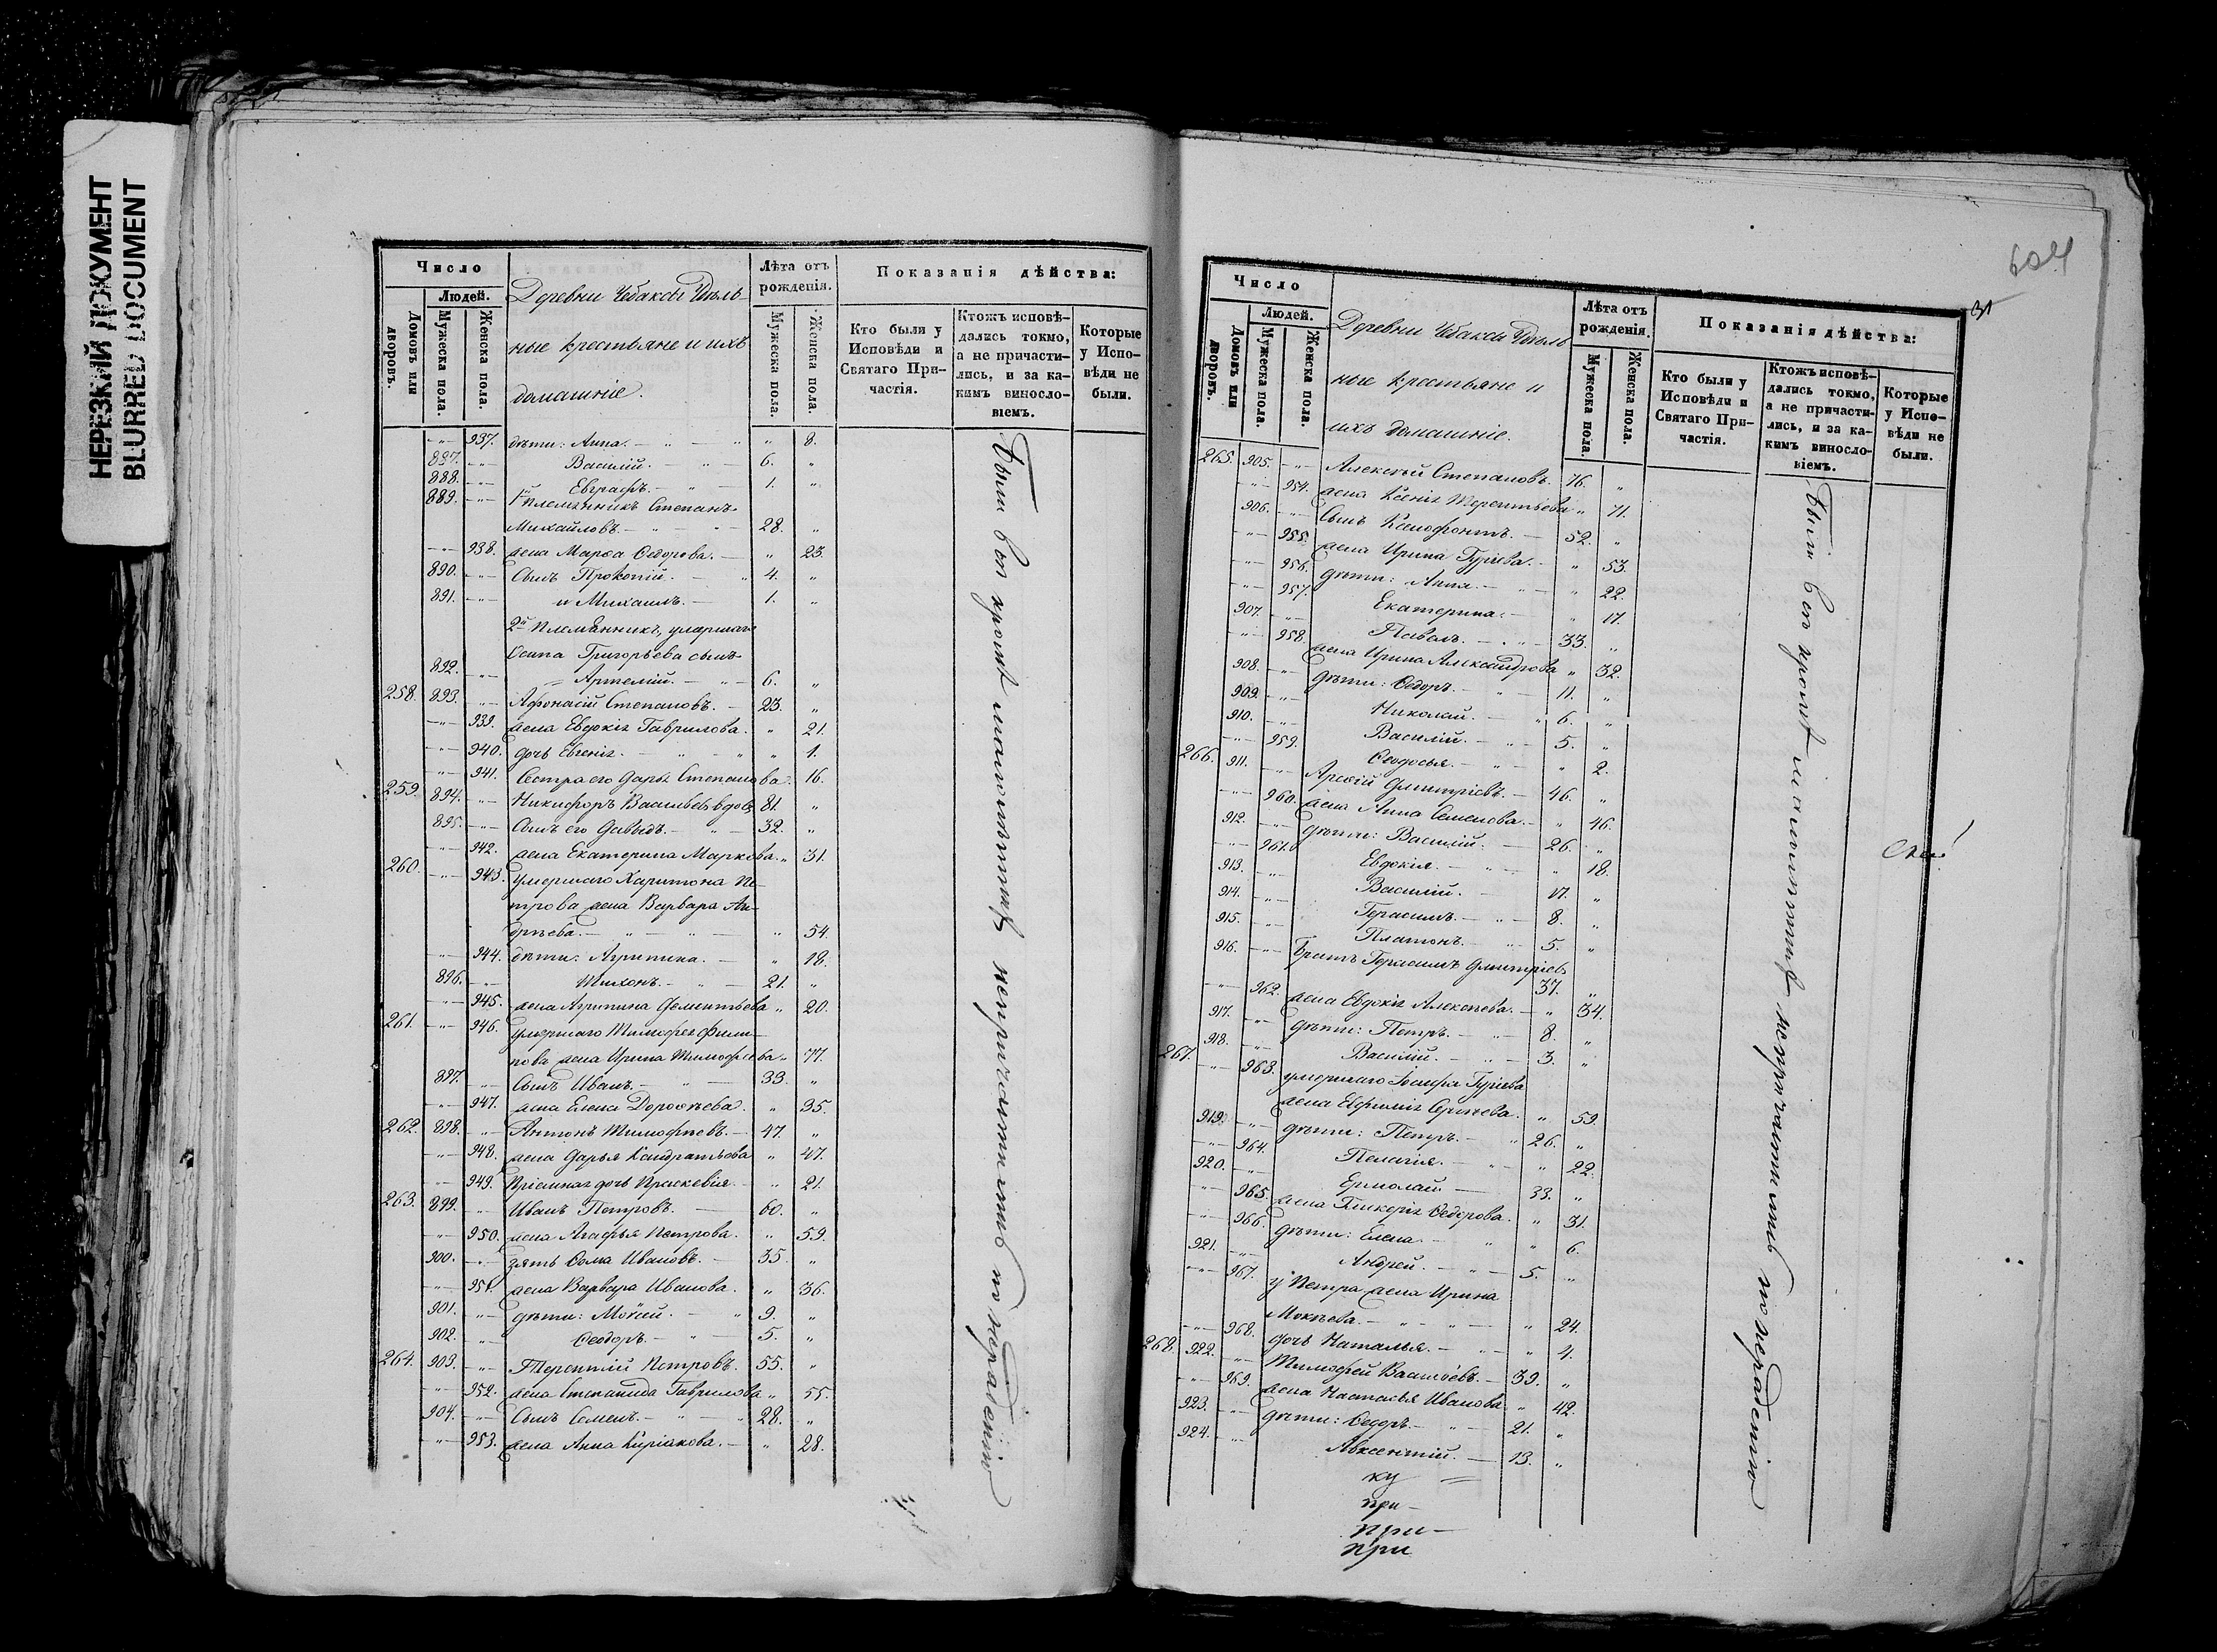 НЕРЕЗКИЙ ДОКУМЕНТ
BLURRED DOCUMENT
Число
Людей.
Домовъ или дворовъ.
Мужеска пола.
Женска пола.
Деревни Чебаксы Удѣль-
ные крестьяне и ихъ
домашніе.
Лѣта отъ рожденія.
Мужеска пола.
Женска пола.
Показанія дѣйства:
Кто были у Исповѣди и Святаго При-частія.
Ктожъ исповѣ-дались токмо, а не причасти-лись, и за ка-кимъ винословіемъ.
Которые у Испо-вѣди не были.
937. дѣти: Анна. 8.
887. Василій. 6.
888. Евграфъ. 1.
889. 1й племянникъ Степанъ
Михайловъ. 28.
938. жена Марѳа Ѳедорова. 23.
890. Сынъ Прокопій. 4.
891. и Михаилъ. 1.
2й племянникъ, умершаго
Осипа Григорьева сынъ
892. Артемій. 6.
258. 893. Афонасій Степановъ. 23.
939. жена Евдокія Гаврилова. 21.
940. дочь Евгенія. 1.
941. Сестра его Дарья Степанова. 16.
259. 894. Никифоръ Васильевъ вдовъ 81.
895. Сынъ его Давыдъ. 32.
942. жена Екатерина Маркова. 31.
260. 943. умершаго Харитона Пе-
трова жена Варвара Ан-
дреева. 54.
944. дѣти: Агрипина. 18.
896. Тихонъ. 21.
945. жена Агрипина Дементьева 20.
261. 946. умершаго Тимофея Фили-
пова жена Ирина Тимофеева 77.
897. Сынъ Иванъ. 33.
947. жена Елена Дороѳеева. 35.
262. 898. Антонъ Тимофѣевъ. 47.
948. жена Дарья Кондратьева 47.
949. Пріемная дочь Праскевія. 21.
263. 899. Иванъ Петровъ. 60.
950. жена Агафья Петрова. 59.
900. зять Ѳома Ивановъ. 35.
951. жена Варвара Иванова. 36.
901. дѣти: Мокій. 9.
902. Ѳеодоръ. 5.
264. 903. Терентій Петровъ. 55.
952. жена Степанида Гаврилова 55.
904. Сынъ Семенъ. 28.
953. жена Анна Киріакова. 28.
Были вси кромѣ малолѣтнихъ непричастились по нерадѣнію
604
31
Число
Людей.
Домовъ или дворовъ.
Мужеска пола.
Женска пола.
Деревни Чебаксы Удѣль
ные крестьяне и
ихъ домашніе.
Лѣта отъ рожденія.
Мужеска пола.
Женска пола.
Показанія дѣйства:
Кто были у Исповѣди и Святаго При-частія.
Ктожъ исповѣ-дались токмо, а не причасти-лись, и за ка-кимъ винословіемъ.
Которые у Испо-вѣди не были.
265. 905. Алексѣй Степановъ. 76.
954. жена Ксенія Терентьева 71.
906. Сынъ Ксенофонтъ. 52.
955. жена Ирина Гурьева. 53.
956. дѣти: Анна. 22.
957. Екатерина. 17.
907. Павелъ. 33.
958. жена Ирина Александрова 32.
908. дѣти: Ѳедоръ. 11.
909. Николай. 6.
910. Василій. 5.
959. Ѳеодосья. 2.
266. 911. Арсеній Дмитріевъ. 46.
960. жена Анна Семенова. 46.
912. дѣти: Василій. 26.
961. Евдокія. 18.
913. Василій. 17.
914. Герасимъ. 8.
915. Платонъ. 5.
916. Братъ Герасимъ Дмитріевъ
37.
962. жена Евдокія Алексѣева. 34.
917. дѣти: Петръ. 8.
918. Василій. 3.
267. 963. умершаго Іосифа Гуріева
жена Евфимія Сергѣева. 59.
919. дѣти: Петръ. 26.
964. Пелагія. 22.
920. Ермолай. 33.
965. жена Гликерія Ѳедорова. 31.
966. дѣти: Елена. 6.
921. Андрей. 5.
967. у Петра жена Ирина
Мокѣева. 24.
968. дочь Наталья. 4.
268. 922. Тимофей Васильевъ. 39.
969. жена Настасья Иванова 42.
923. дѣти: Ѳедоръ. 21.
924. Авксентій. 13.
при-
при-
при
Были вси кромѣ малолѣтнихъ непричастились по нерадѣнію